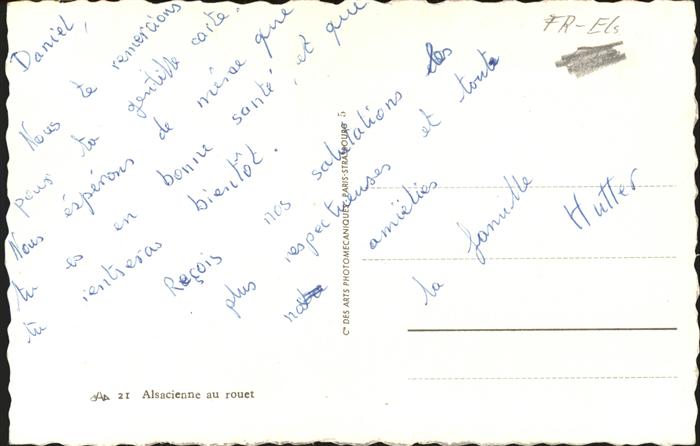 Daniel,
Nous te remercions
pour ta gentille carte.
Nous éspérons de même que
tu es en bonne santé, et que
tu rentreras bientôt.
Reçois nos salutations les
plus respectueuses et toute
notre amitiés
la famille Hutter
FR-Els
Cie DES ARTS PHOTOMECANIQUES PARIS-STRASBOURG 5
21 Alsacienne au rouet